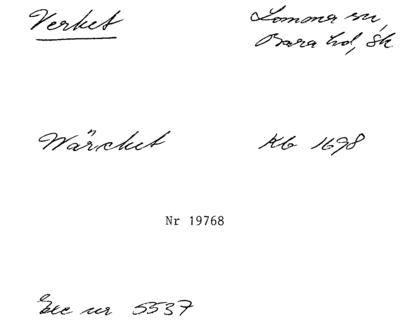 Verket
Lomma sn,
Bara hd, Sk
Wärcket
Kb 1698
Nr 19768
Exc nr 5537